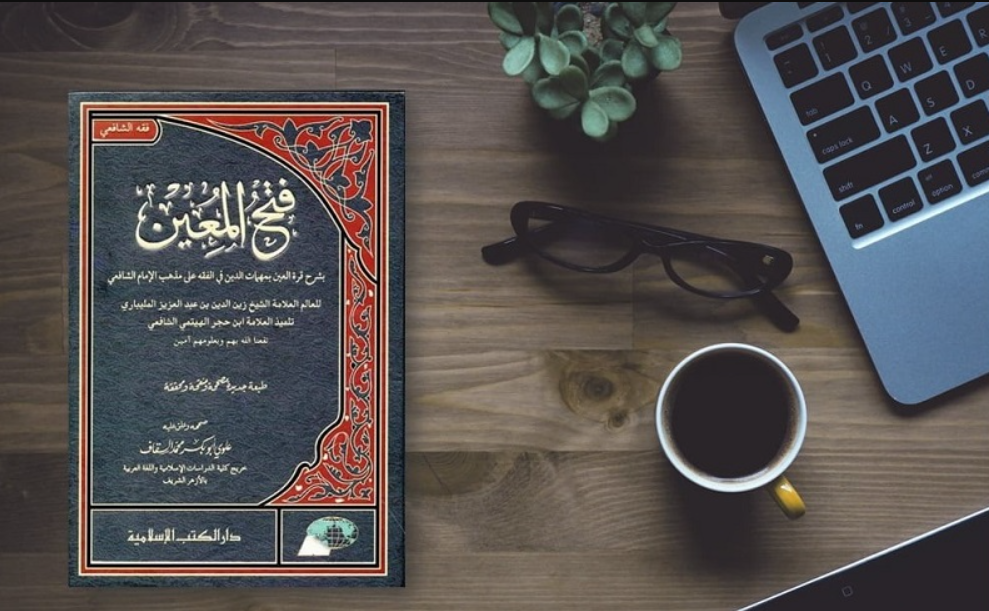 فقه الشافعي
فتح المعين
بشرح قرة العين بمهمات الدين في الفقه على مذهب الإمام الشافعي
للعالم العلامة الشيخ زين الدين بن عبد العزيز المليباري
تلميذ العلامة ابن حجر الهيتمي الشافعي
نفعنا الله بهم وبعلومهم آمين
طبعة جديدة مصححة ومنقحة ومحققة
صححه وعلق عليه
علوي أبو بكر محمد السقاف
خريج كلية الدراسات الإسلامية واللغة العربية
بالأزهر الشريف
دار الكتب الإسلامية
1 2 3
tab Q W E R
caps lock A S D
shift Z X
fn control option